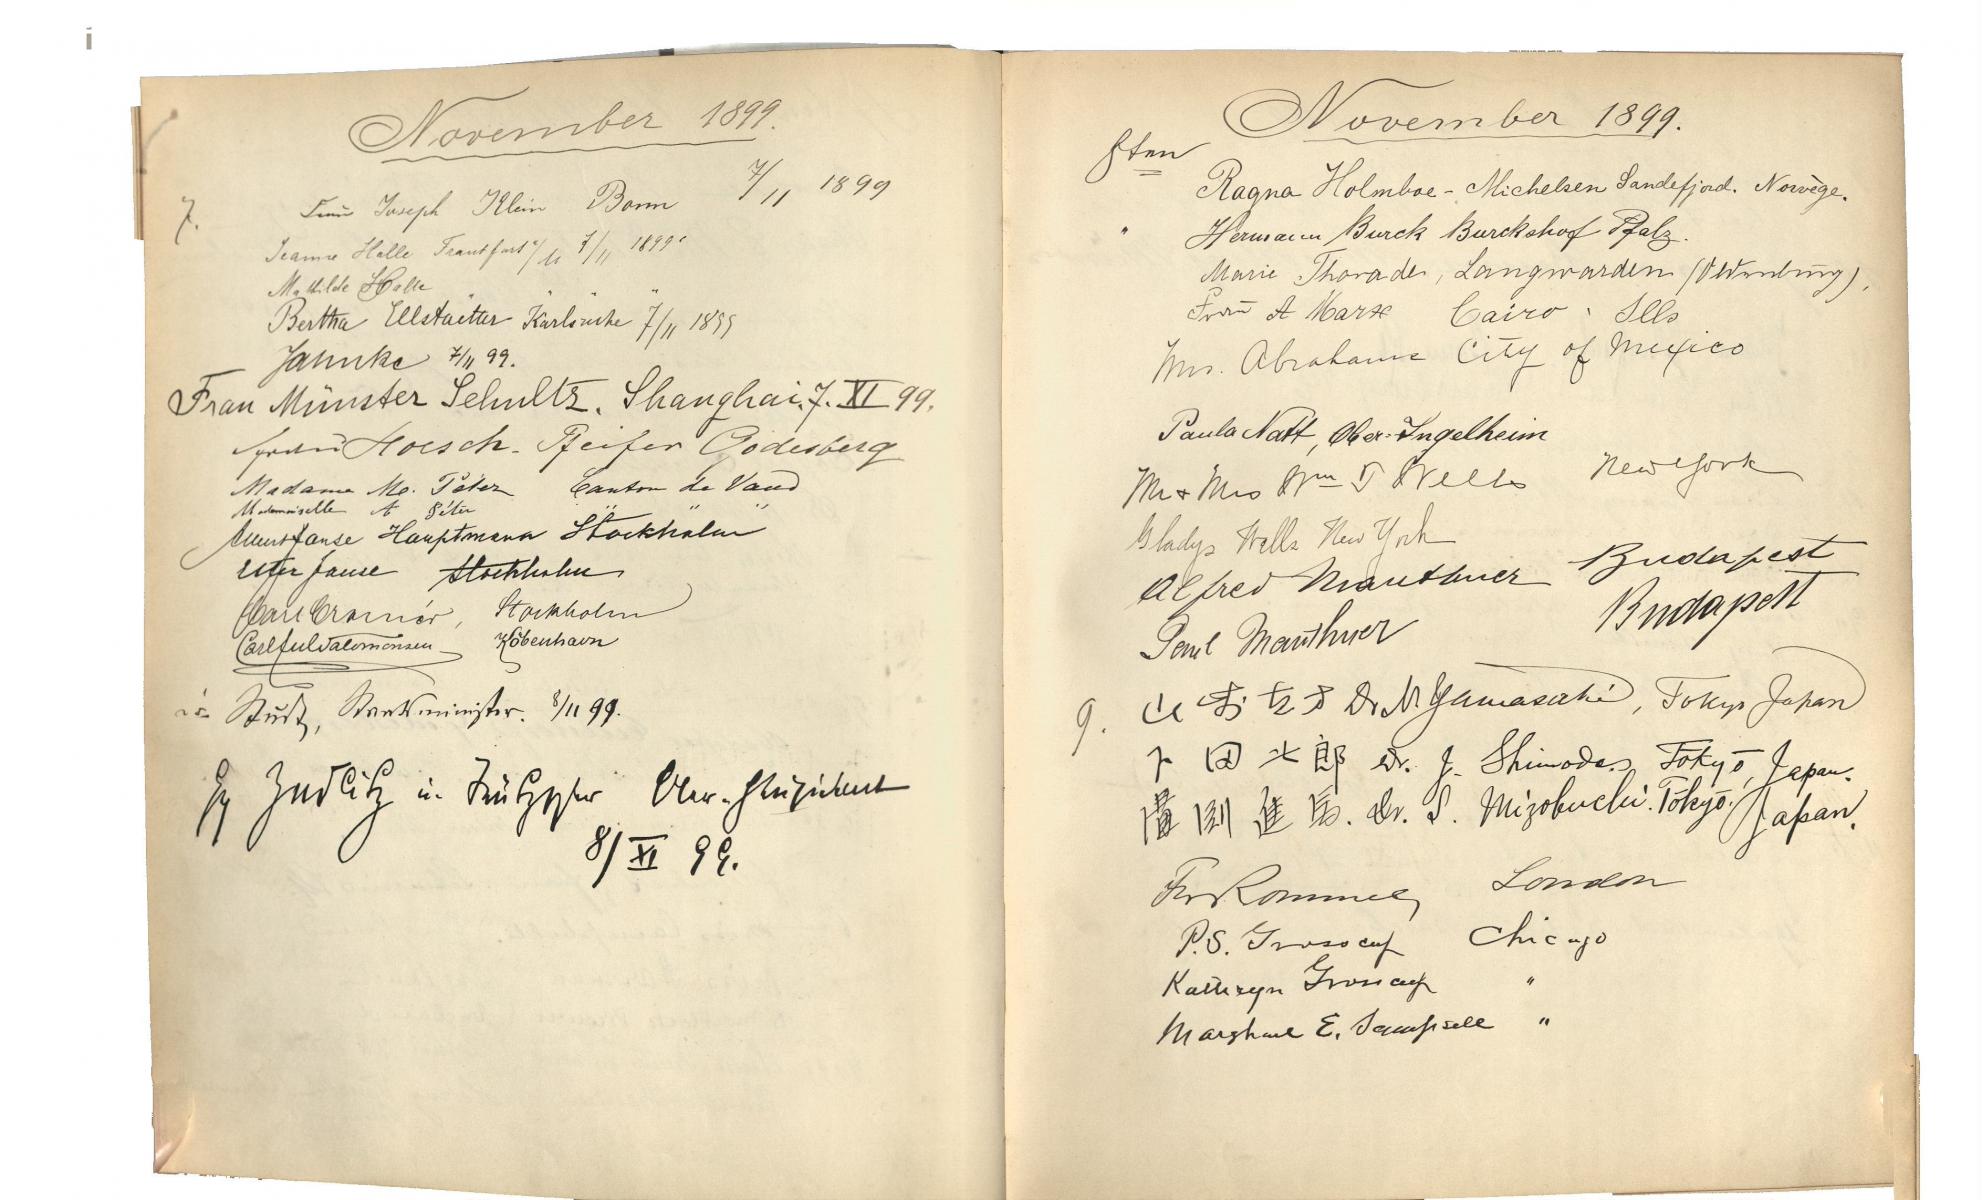 November 1899.
7. Frau Joseph Klein Bonn 7/11 1899
Jeanne Halle Frankfurt a/M 7/11 1899
Mathilde Halle "
Bertha Ellstaetter Karlsruhe 7/11 1899
Jahnke 7/11 99.
Frau Münster Schultz. Shanghai. 7. XI 99.
Frau Hoesch-Pfeifer Godesberg
Madame M. Péter Canton de Vaud
Mademoiselle A Péter " "
Janse Hauptmann Stockholm
Janse Stockholm
Carl Cramér, Stockholm
Carl Jul Salomonsen København
Studt, Staatsminister. 8/11 99.
Zedlitz u. Trützschler Ober-Präsident
8/XI 99.
November 1899.
8ten
Ragna Holmboe-Michelsen Sandefjord. Norvège.
" Hermann Burck Burckshof Pfalz.
Marie Thorade, Langwarden (Oldenburg),
Frau A Marx Cairo. Ills
Mrs. Abrahams City of Mexico
Paula Natt, Ober-Ingelheim
Mr & Mrs Wm T Wells New York
Gladys Wells New York
Alfred Mauthner Budapest
Paul Mauthner Budapest
9. Dr. N. Yamasaki, Tokyo Japan
下田 郎 Dr. J. Shimoda. Tokyō, Japan.
進 Dr. S. Mizobuchi. Tōkyō. Japan.
Rommel London
P.S. Grosscup Chicago
Kathryn Grosscup "
E. Sampsell "